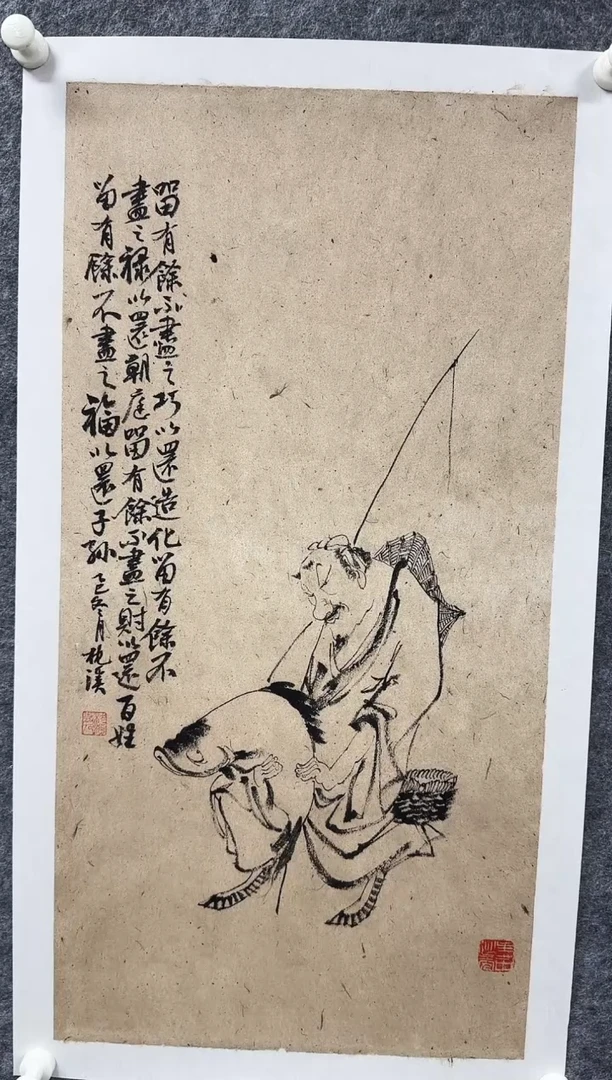 留有餘不盡之巧以還造化留有餘不
盡之祿以還朝庭留有餘不盡之財以還百姓
留有餘不盡之福以還子孫 乙巳冬月枕溪